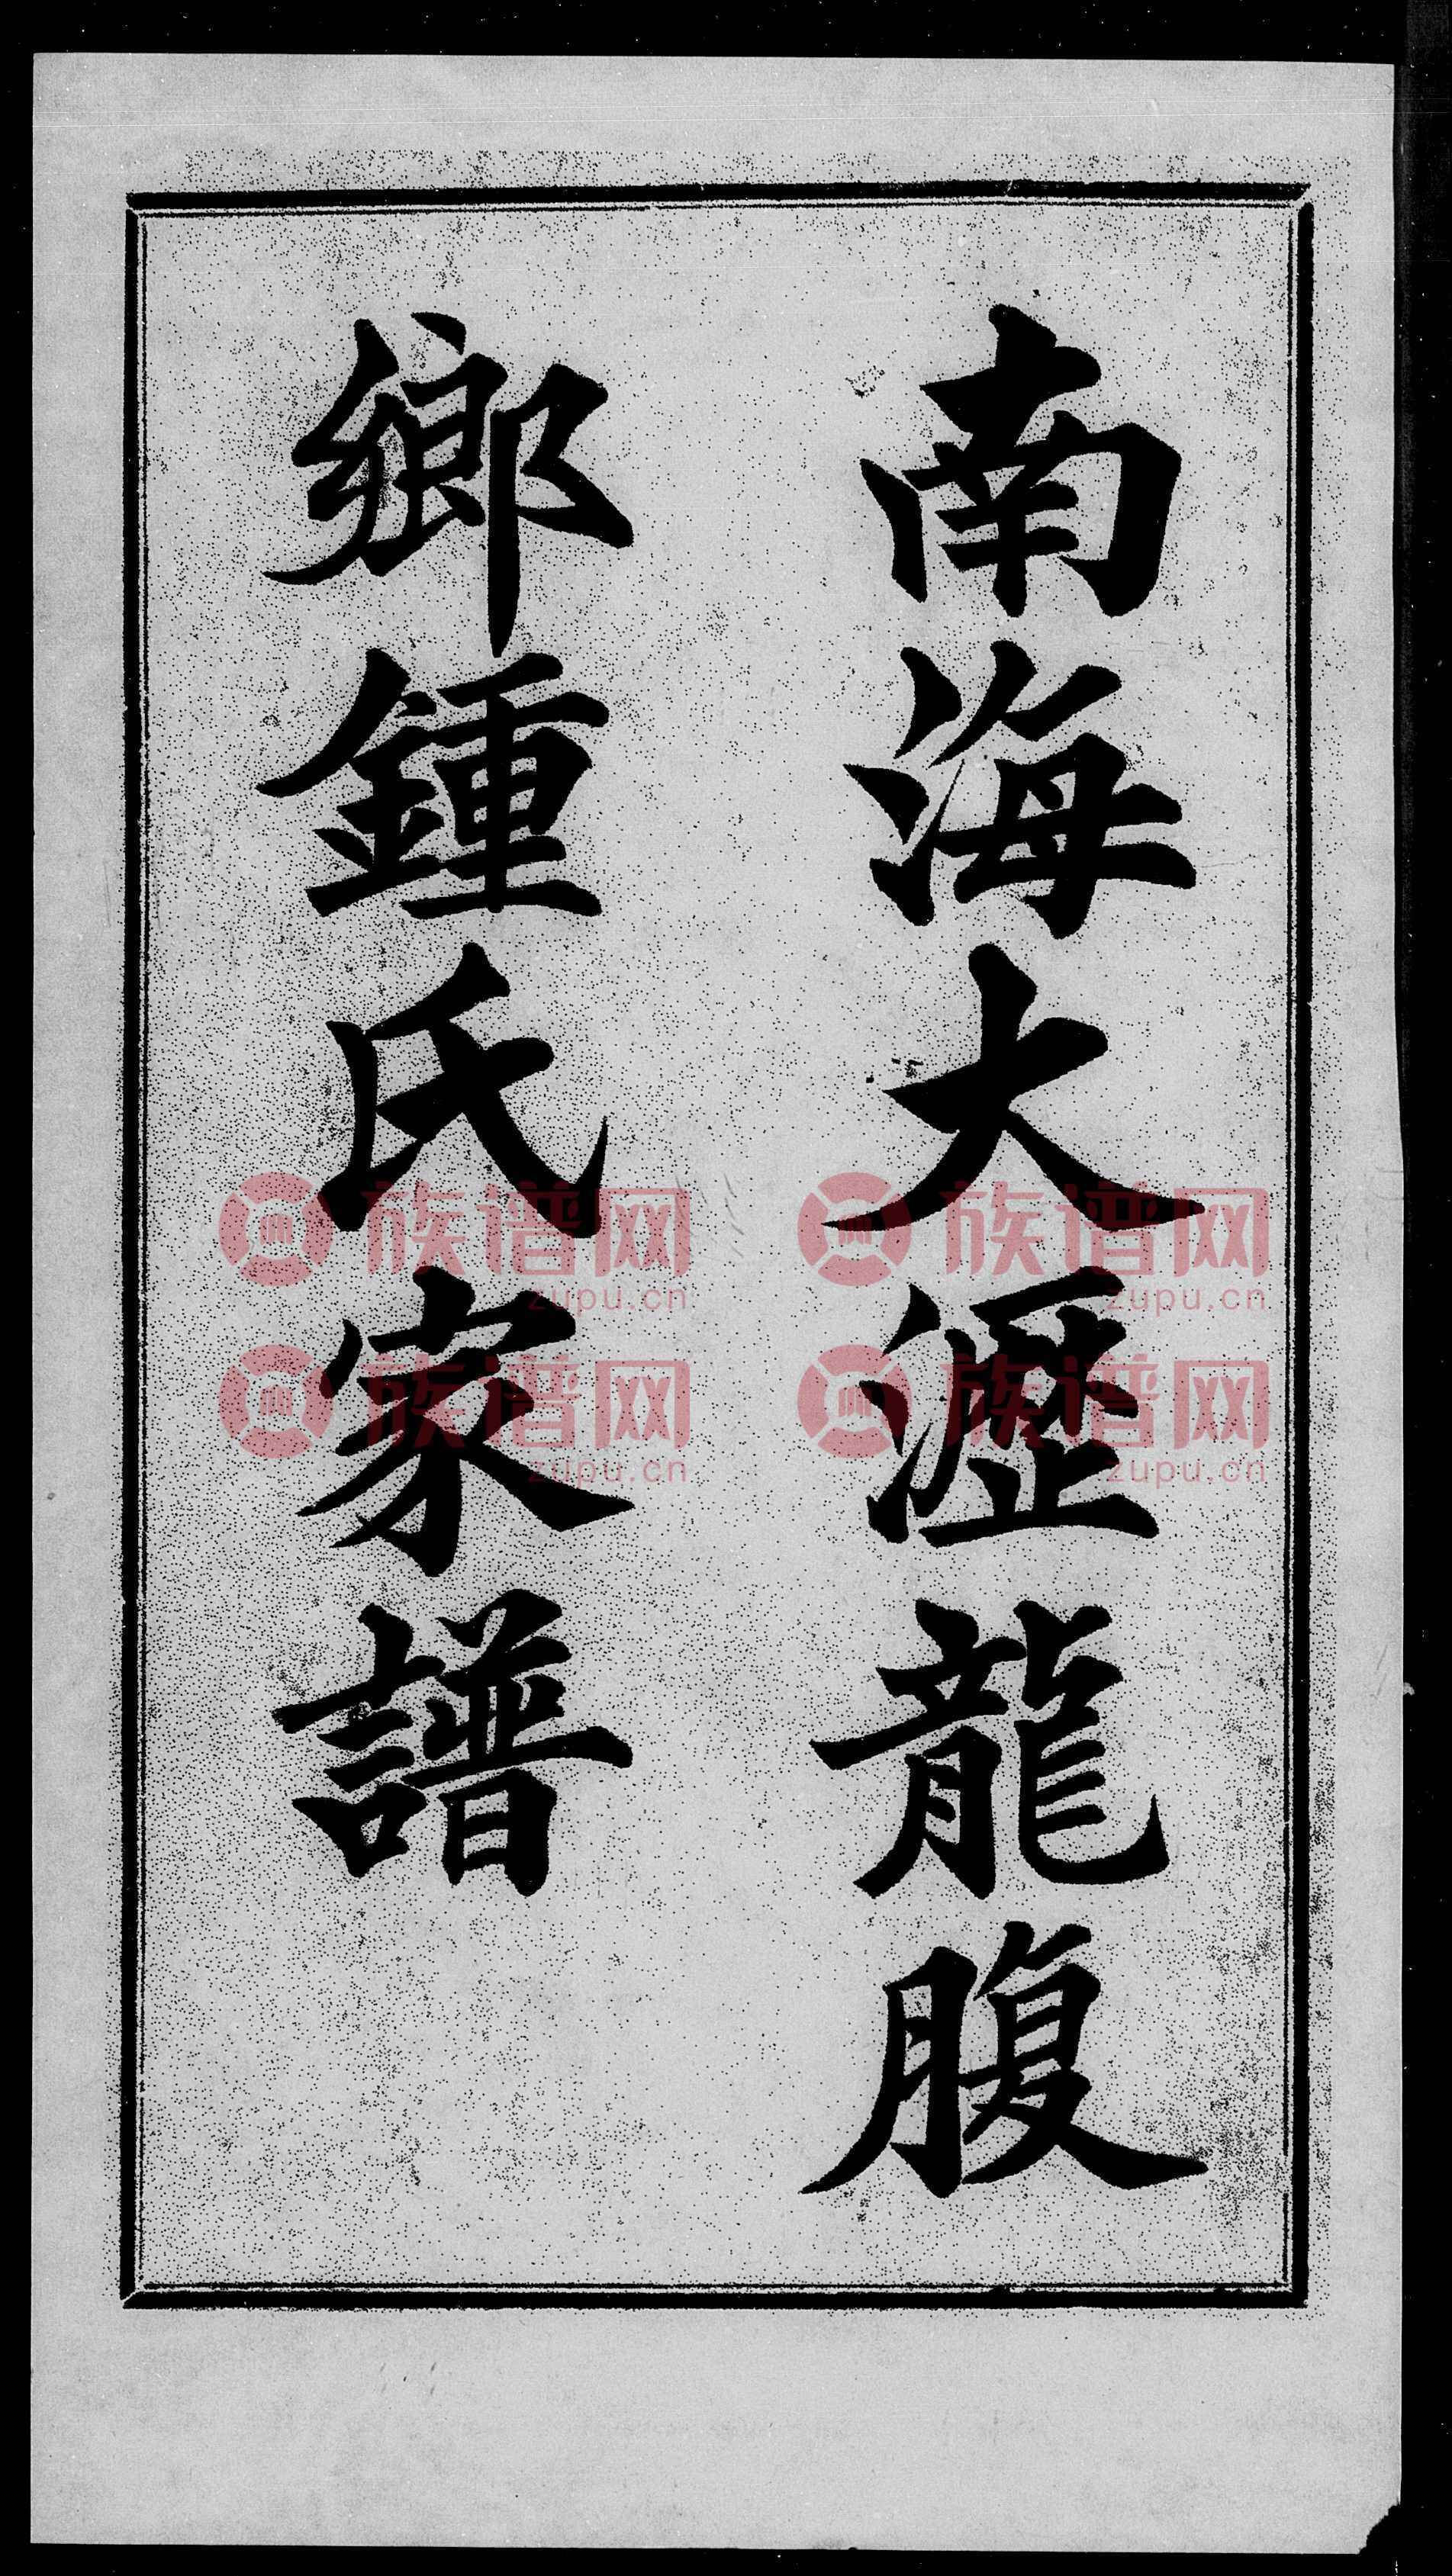 南海大瀝龍腹
鄉鍾氏家譜
族谱网
zupu.cn
族谱网
zupu.cn
族谱网
zupu.cn
族谱网
zupu.cn